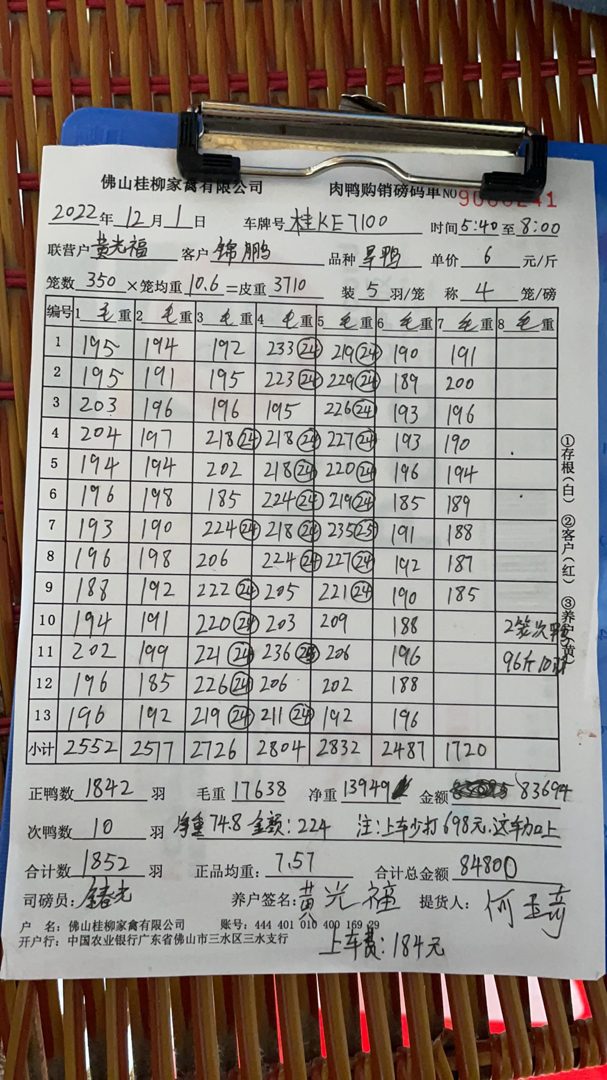 佛山桂柳家禽有限公司 肉鸭购销磅码单 NO 9000241
2022年12月1日 车牌号 桂KE7100 时间5:40至8:00
联营户 黄光福 客户 锦鹏 品种 旱鸭 单价 6 元/斤
笼数 350 ×笼均重 10.6 =皮重 3710 装 5 羽/笼 称 4 笼/磅
编号 1 毛重 2 毛重 3 毛重 4 毛重 5 毛重 6 毛重 7 毛重 8 重
1 195 194 192 233(24) 219(24) 190 191
2 195 191 195 223(24) 229(24) 189 200
3 203 196 196 195 226(24) 193 196
4 204 197 218(24) 218(24) 227(24) 193 190
5 194 194 202 218(24) 220(24) 196 194
6 196 198 185 224(24) 219(24) 185 189
7 193 190 224(24) 218(24) 235(25) 191 188
8 196 198 206 224(24) 227(24) 192 187
9 188 192 222(24) 205 221(24) 190 185
10 194 191 220(24) 203 209 188 2笼次鸭
11 202 199 221(24) 236 206 196 96斤10羽
12 196 185 226(24) 206 202 188
13 196 192 219(24) 211(24) 192 196
小计 2552 2517 2726 2804 2832 2487 1720
正鸭数 1842 羽 毛重 17638 净重 13949 金额 83694
次鸭数 10 羽 净重74.8 金额:224 注:上车少打698元,这车加上
合计数 1852 羽 正品均重: 7.57 合计总金额 84800
司磅员: 养户签名: 黄光福 提货人: 何玉奇
户 名: 佛山桂柳家禽有限公司 账号: 444 401 010 400 169 29
开户行: 中国农业银行广东省佛山市三水区三水支行
上车费:184元
①存根(白) ②客户(红) ③养户(黄)